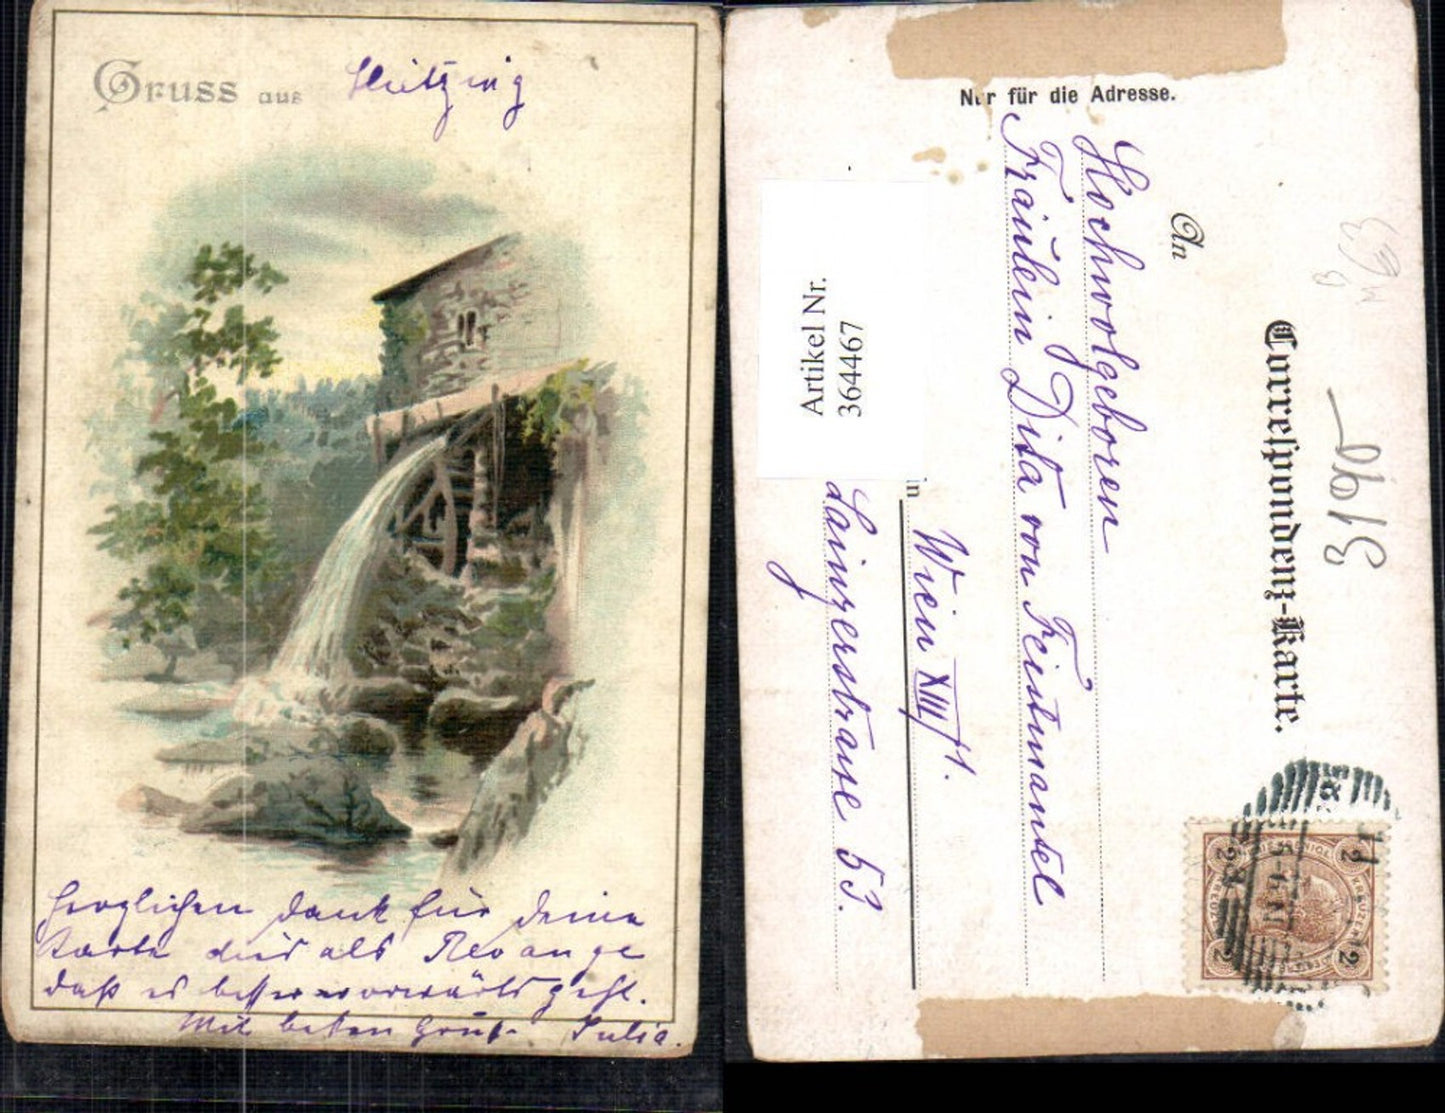 Gruss aus Hietzing
Herzlichen Dank für Deine
Karte und als Revange
daß es besser vorwärts geht.
Mit besten Gruß Julia.
Nur für die Adresse.
Correspondenz-Karte.
An
Hochwolgeboren
Fräulein Dita von Feistmantel
in Wien XIII/1.
Lainzerstrasse 53.
Artikel Nr.
364467
2 2
2 2